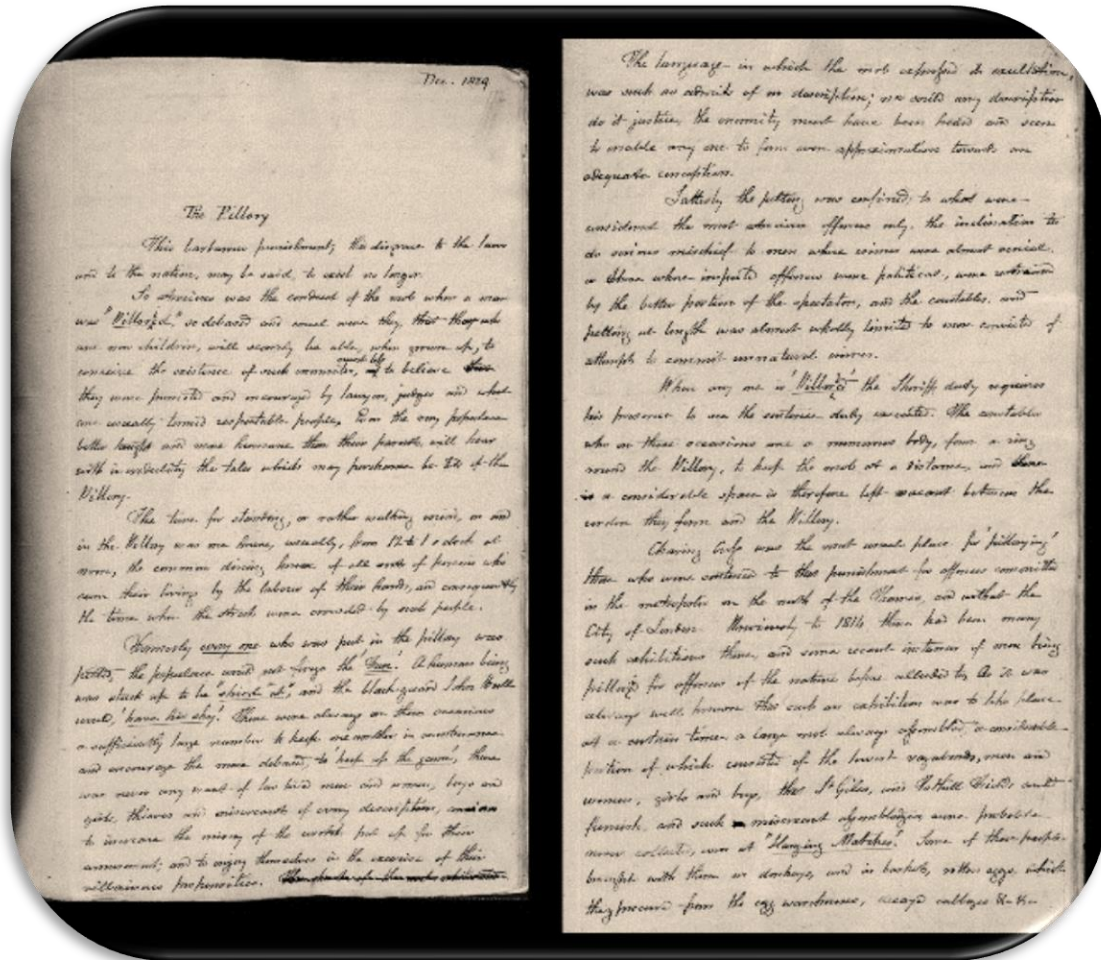 Dec. 1829
The Pillory
This barbarous punishment, the disgrace to the laws
and to the nation, may be said, to exist no longer.
So atrocious was the conduct of the mob when a man
was "Pilloried," so debased and cruel were they, that they who
are now children, will scarcely be able, when grown up, to
conceive the existence of such enormities, to believe
they were permitted and encouraged by lawyers, judges and what
are usually termed respectable people, Even the very populace
better taught and more humane than their parents will hear
with incredulity the tales which may perchance be told of the
Pillory.
The time for standing, or rather walking round, on and
in the Pillory was one hour, usually, from 12 to 1 o clock at
noon, the common dining hour of all sorts of persons who
earn their living by the labour of their hands, and consequently
the time when the streets were crowded by such people.
Formerly every one who was put in the pillory was
pelted, the populace would not forgo the 'Fun'. A human being
was stuck up to be "shied at," and the black-guard John Bull
would, 'have his shy.' There were always on these occasions
a sufficiently large number to keep one another in countenance
and encourage the more debased, to 'keep up the game', there
was never any want of low lived men and women, boys and
girls, thieves and miscreants of every description,
to increase the misery of the wretch put up for their
amusement; and to enjoy themselves in the exercise of their
villainous propensities.
The language in which the mob expressed its exultation,
was such as admits of no description; nor could any description
do it justice, the enormity must have been heard and seen
to enable any one to form even approximation towards an
adequate conception.
Latterly the pelting was confined to what were
considered the most atrocious offences only, the inclination to
do serious mischief to men whose crimes were almost venial,
or those whose imputed offences were political, were restrained
by the better portion of the spectators, and the constables, and
pelting at length was almost wholly limited to men convicted of
attempts to commit unnatural crimes.
When any one is 'Pilloried' the Sheriffs duty requires
his presence to see the sentence duly executed. The constables
who on these occasions are a numerous body, form a ring
round the Pillory, to keep the mob at a distance, and
a considerable space is therefore left vacant between the
cordon they form and the Pillory.
Charing Cross was the most usual place for 'pillorying'
those who were sentenced to this punishment for offences committed
in the metropolis on the north of the Thames, and without the
City of London. Previously to 1814 there had been many
such exhibitions there, and some recent instances of men being
pilloried for offences of the nature before alluded to, As it was
always well known that such an exhibition was to take place
at a certain time a large mob always assembled, a considerable
portion of which consisted of the lowest vagabonds, men and
women, girls and boys, that St Giles, and Tothill Fields could
furnish, and such miscreant assemblages were probably
never collected, even at "Hanging Matches". Some of these people
brought with them on donkeys, and in baskets, rotten eggs, which
they procured from the egg warehouses, decayed cabbages &c &c